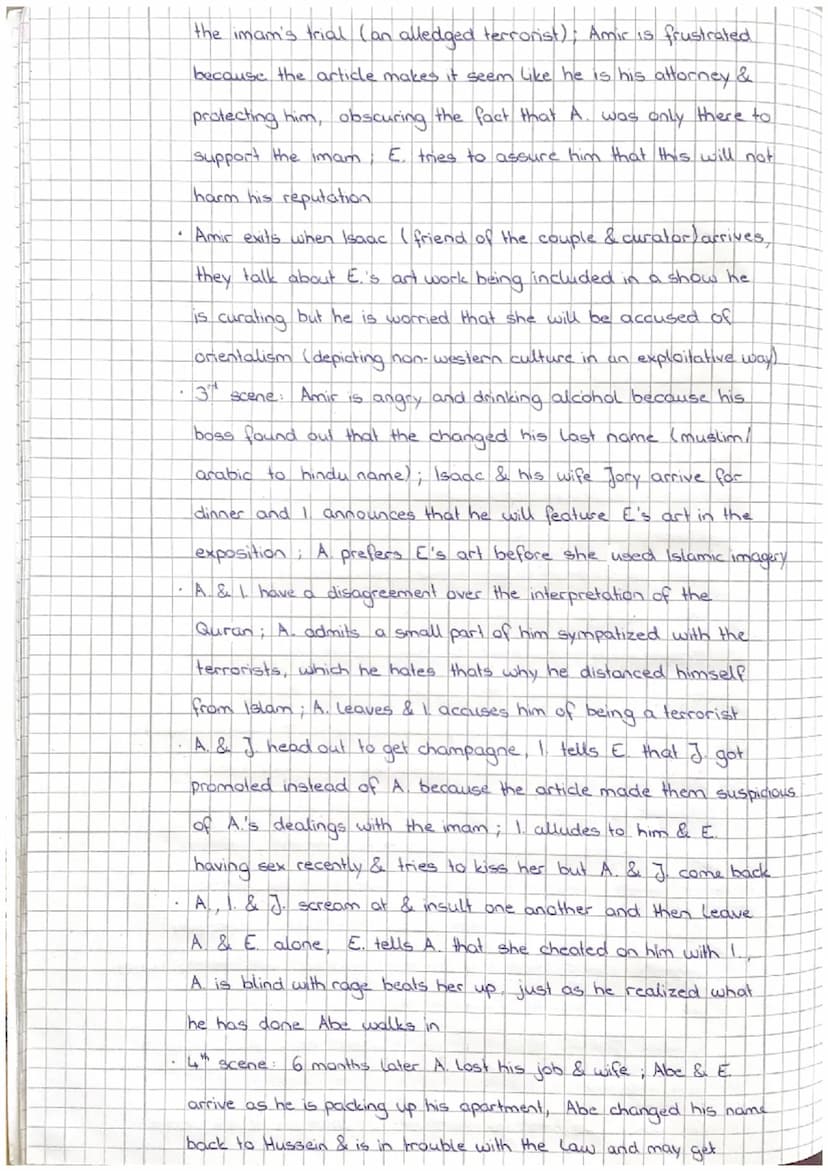 the imam's trial (an alledged terrorist); Amir is frustrated
because the article makes it seem like he is his attorney &
protecting him, obscuring the fact that A. was only there to
support the imam; E. tries to assure him that this will not
harm his reputation
· Amir exits when Isaac (friend of the couple & curator) arrives,
they talk about E.'s art work being included in a show he
is curating but he is worried that she will be accused of
orientalism (depicting non-western culture in an exploitative way)
· 3rd scene: Amir is angry and drinking alcohol because his
boss found out that the changed his last name (muslim/
arabic to hindu name); Isaac & his wife Jory arrive for
dinner and I. announces that he will feature E's art in the
exposition; A. prefers E's art before she used Islamic imagery
· A. & I. have a disagreement over the interpretation of the
Quran; A. admits a small part of him sympatized with the
terrorists, which he hates thats why he distanced himself
from Islam; A. leaves & I. accuses him of being a terrorist
· A. & J. head out to get champagne, I. tells E. that J. got
promoted instead of A. because the article made them suspicious
of A.'s dealings with the imam; I. alludes to him & E.
having sex recently & tries to kiss her but A. & J. come back
· A., I. & J. scream at & insult one another and then leave
A. & E. alone, E. tells A. that she cheated on him with I.,
A. is blind with rage beats her up, just as he realized what
he has done Abe walks in
· 4th scene: 6 months later A. lost his job & wife; Abe & E.
arrive as he is packing up his apartment, Abe changed his name
back to Hussein & is in trouble with the law and may get